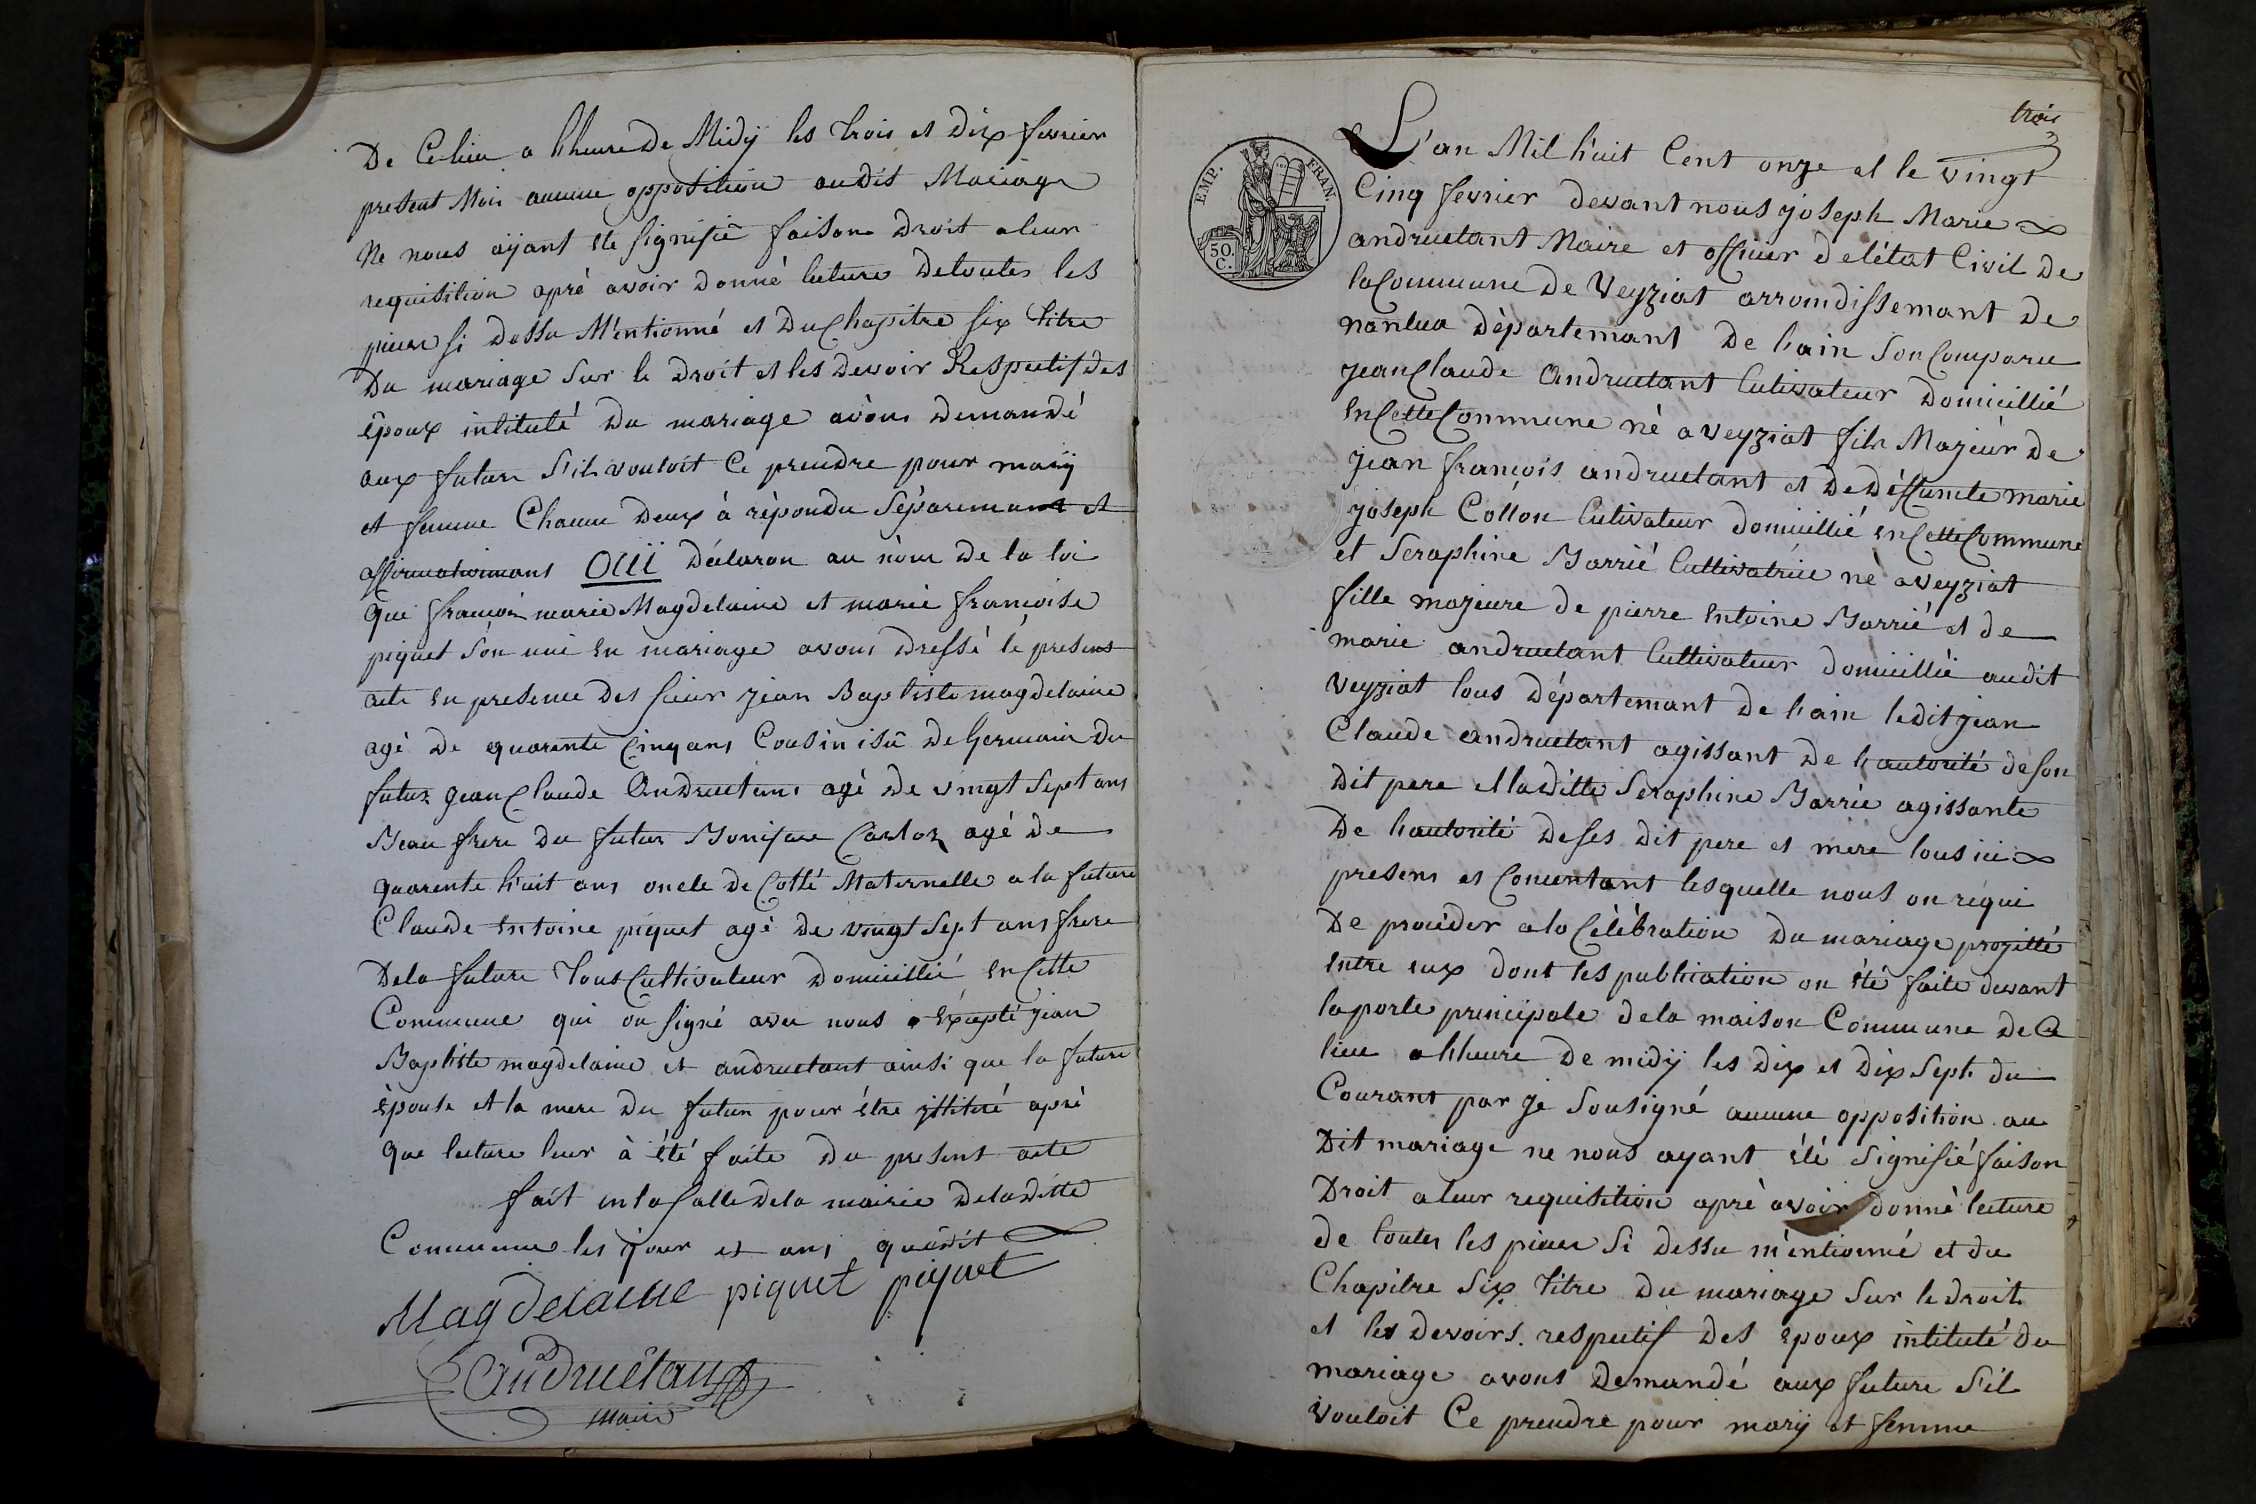 De Ce lieu a lheure De Midÿ les trois et Dix fevrier
present Mois aucune opposition audit Mariage
Ne nous aÿant ete signifié faison Droit a leur
requisition apré avoir Donné lecture De toutes les
pieces si Dessu M'entionné et Du Chapitre six titre
Du mariage Sur le Droit et les Devoir Respectif Des
époux intitulé Du mariage avons Demandé
aux future S'il vouloit Ce prendre pour marÿ
et femme Chacun Deux à répondu Séparemant et
affirmativemant OUI Déclaron au nom De la loi
que françois marie Magdelaine et marie françoise
piquet són uni en mariage avons Dressé lé present
acte en presence Des sieur jean Baptiste magdelaine
agé De quarente Cinq ans Cousin isû De Germain Du
futur jean Claude Andruetant agé De vingt Sept ans
Beau frere Du futur Boniface Carloz agé De
quarente huit ans oncle De Cotté Maternelle a la future
Claude entoine piquet agé De vingt Sept ans frere
De la future tous Cultivateur Domicillié en Cette
Commune qui on signé avec nous éxcepté jean
Baptiste magdelaine et andruetant ainsi que la future
épouse et la mere Du futur pour étre illitéré apré
que lecture leur à été faite Du present acte
fait en la Salle De la mairie De la Ditte
Commune les jour et ans que dit
Magdelaine piquet piquet
Andruétant
maire
trois
3
EMP. FRAN.
50. C.
L'an Mil huit Cent onze et le vingt
Cinq fevrier devant nous joseph Marie
andruetant Maire et officier de létat Civil De
la Commune De Veyziat arrondissemant De
nantua Départemant De lain Son Comparu
jean Claude Andruetant Cutivateur Domicillié
en Cette Commune né a veyziat fils Majeur De
jean françois andruetant et De Déffuncte marie
joseph Collon Cutivateur domicillié en Cette Commune
et Seraphine Barrié Cultivatrice né a veyziat
fille majeure de pierre entoine Barrié et de
marie andruetant Cultivateur domicillié audit
veyziat tous Départemant De lain ledit jean
Claude andruetant agissant De lautorité de son
Dit pere et la ditte Seraphine Barrié agissante
De lautorité De ses dit pere et mère tous ici
presens et Consentant lesquelle nous on réqui
De procéder a la Célébration Du mariage projetté
entre eux dont les publication on été faite devant
la porte principale de la maison Commune De Ce
lieu a lheure De midÿ les Dix et Dix Sept du
Courant par je Sousigné aucune opposition au
Dit mariage ne nous ayant été Signifié faison
Droit a leur requisition apré avoir donné lecture
de toutes les pieces Si dessu m'entionné et du
Chapitre Six titre Du mariage Sur le droit
et les Devoirs respectif Des époux intitulé Du
mariage avons Demandé aux future S'il
vouloit Ce prendre pour marÿ et femme